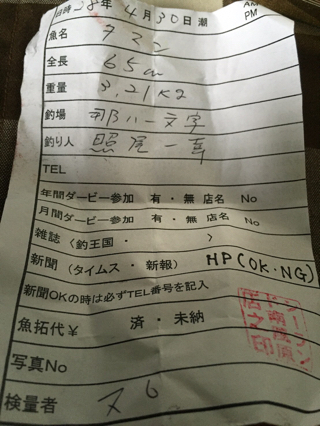 日時 28年 4月30日 潮 AM
PM
魚名 タマン
全長 65cm
重量 3,21K2
釣場 那八一文字
釣り人 照屋一幸
TEL
年間ダービー参加 有・無 店名 No
月間ダービー参加 有・無 店名 No
雑誌(釣王国・ )
新聞(タイムス・新報) HP(OK・NG)
新聞OKの時は必ずTEL番号を記入
魚拓代¥ 済・未納
写真No
検量者